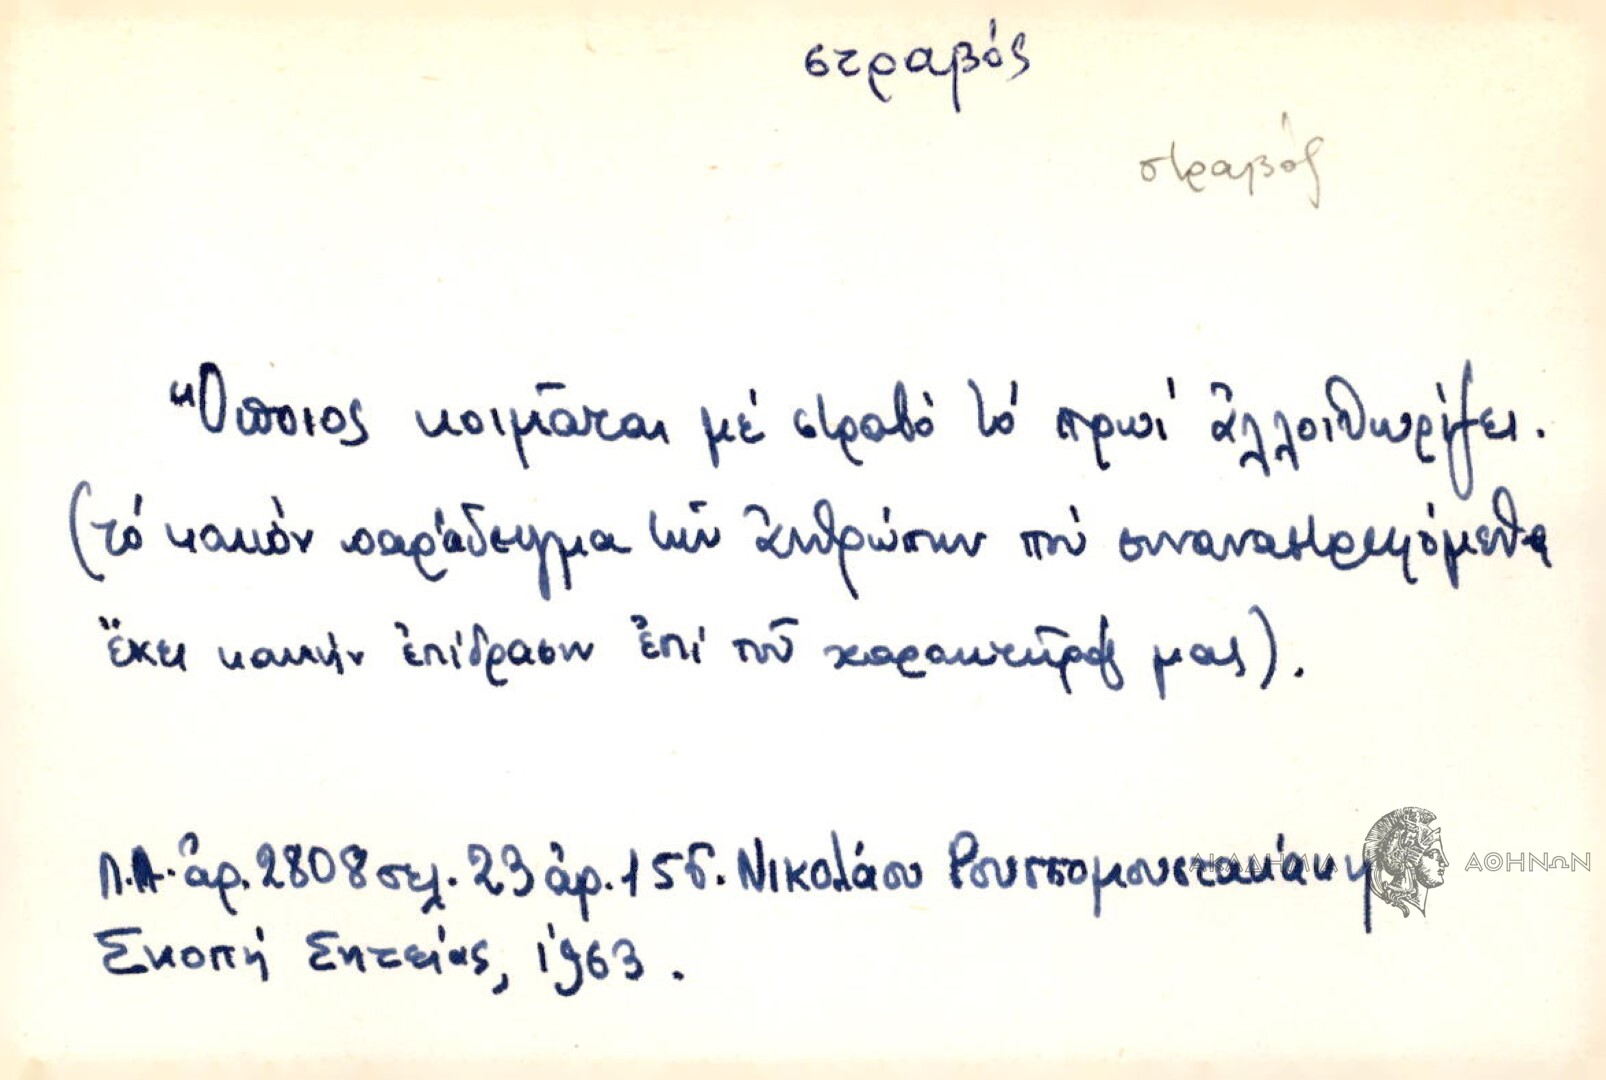 στραβός
στραβός
Ὅποιος κοιμᾶται μέ στραβό τό πρωί ἀλλοιθωρίζει.
(τό κακόν παράδειγμα τῶν ἀνθρώπων πού συναναστρεφόμεθα
ἔχει κακήν ἐπίδρασιν ἐπί τοῦ χαρακτῆρος μας).
Λ.Α. ἀρ. 2808 σελ. 23 ἀρ. 156. Νικολάου Ρουσσομουστακάκη
Σκοπή Σητείας, 1963.
ΑΚΑΔΗΜΙΑ ΑΘΗΝΩΝ